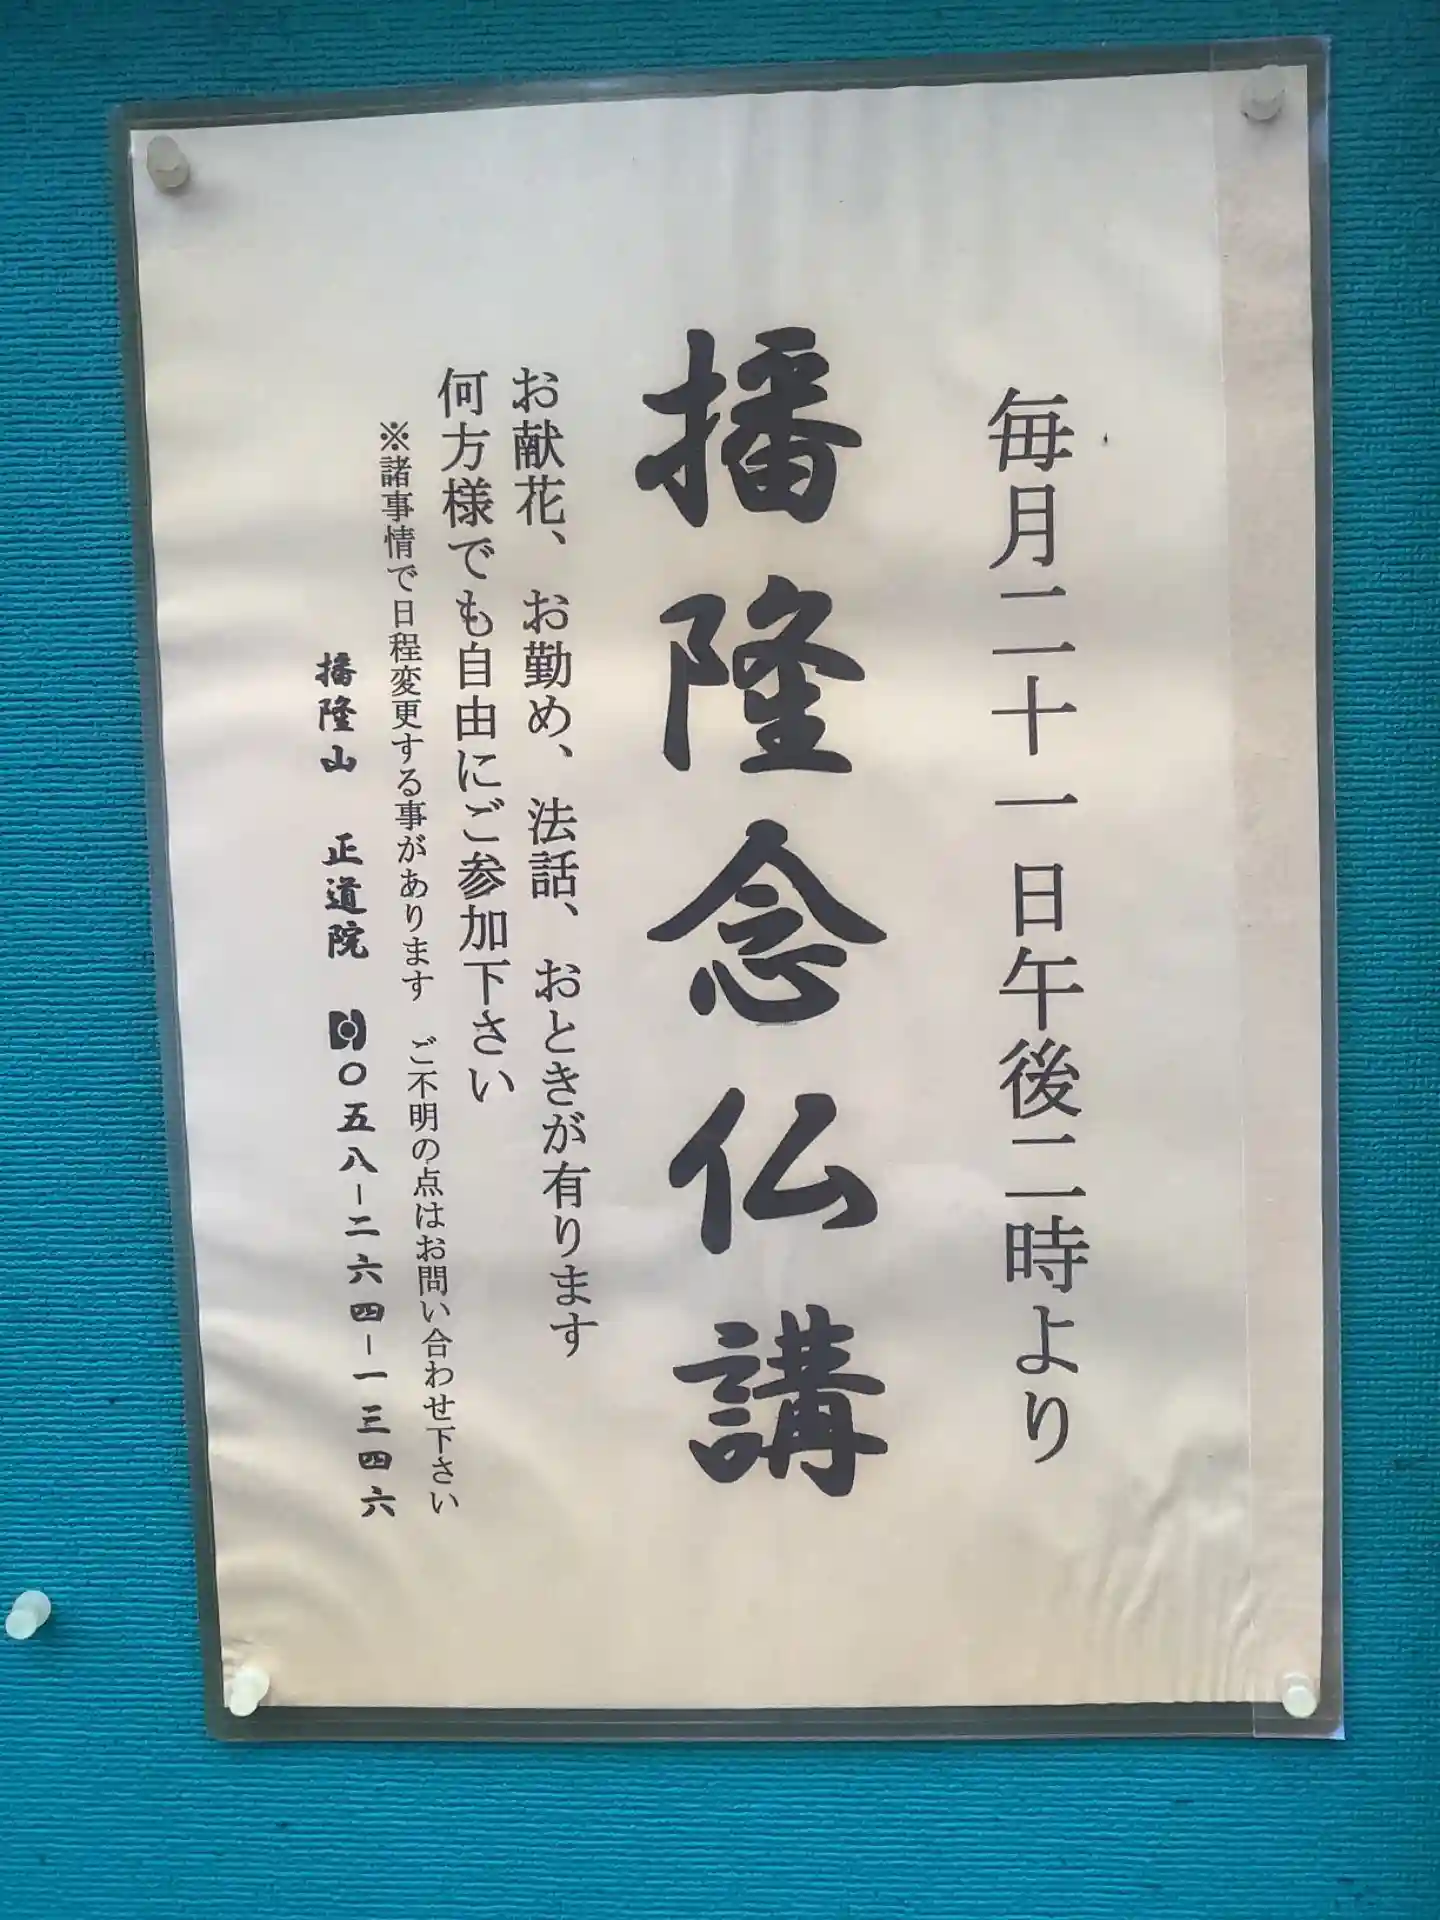 毎月二十一日午後二時より
播隆念仏講
お献花、お勤め、法話、おときが有ります
何方様でも自由にご参加下さい
※諸事情で日程変更する事があります　ご不明の点はお問い合わせ下さい
播隆山　正道院　〇五八－二六四－一三四六